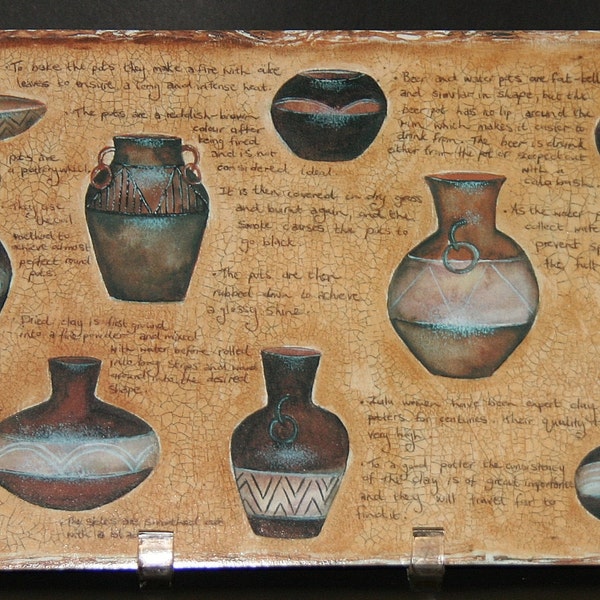 • To bake the pots they make a fire with aloe
leaves to ensure a long and intense heat.
The pots are a reddish-brown
colour after
being fired
and is not
considered ideal
It is then covered in dry grass
and burnt again, and the
smoke causes the pots to
go black
• The pots are then
rubbed down to achieve
a glossy shine.
pots are
a pottery wheel
• They use
the coil
method to
achieve almost
perfect round
pots.
• Dried clay is first ground
into a fine powder and mixed
with water before rolled
into long strips and wound
around into the desired
shape
• The sides are smoothed out
with
• Beer and water pots are fat-bell
and similar in shape, but the
beer pot has no lip around the
rim which makes it easier to
drink from. The beer is drunk
either from the pot or scooped out
with a
calabash
• As the water p
collect wate
prevent sp
the full
• Zulu women have been expert clay
potters for centuries. Their quality
very high.
• To a good potter the consistency
of the clay is of great importance
and they will travel far to
find it.